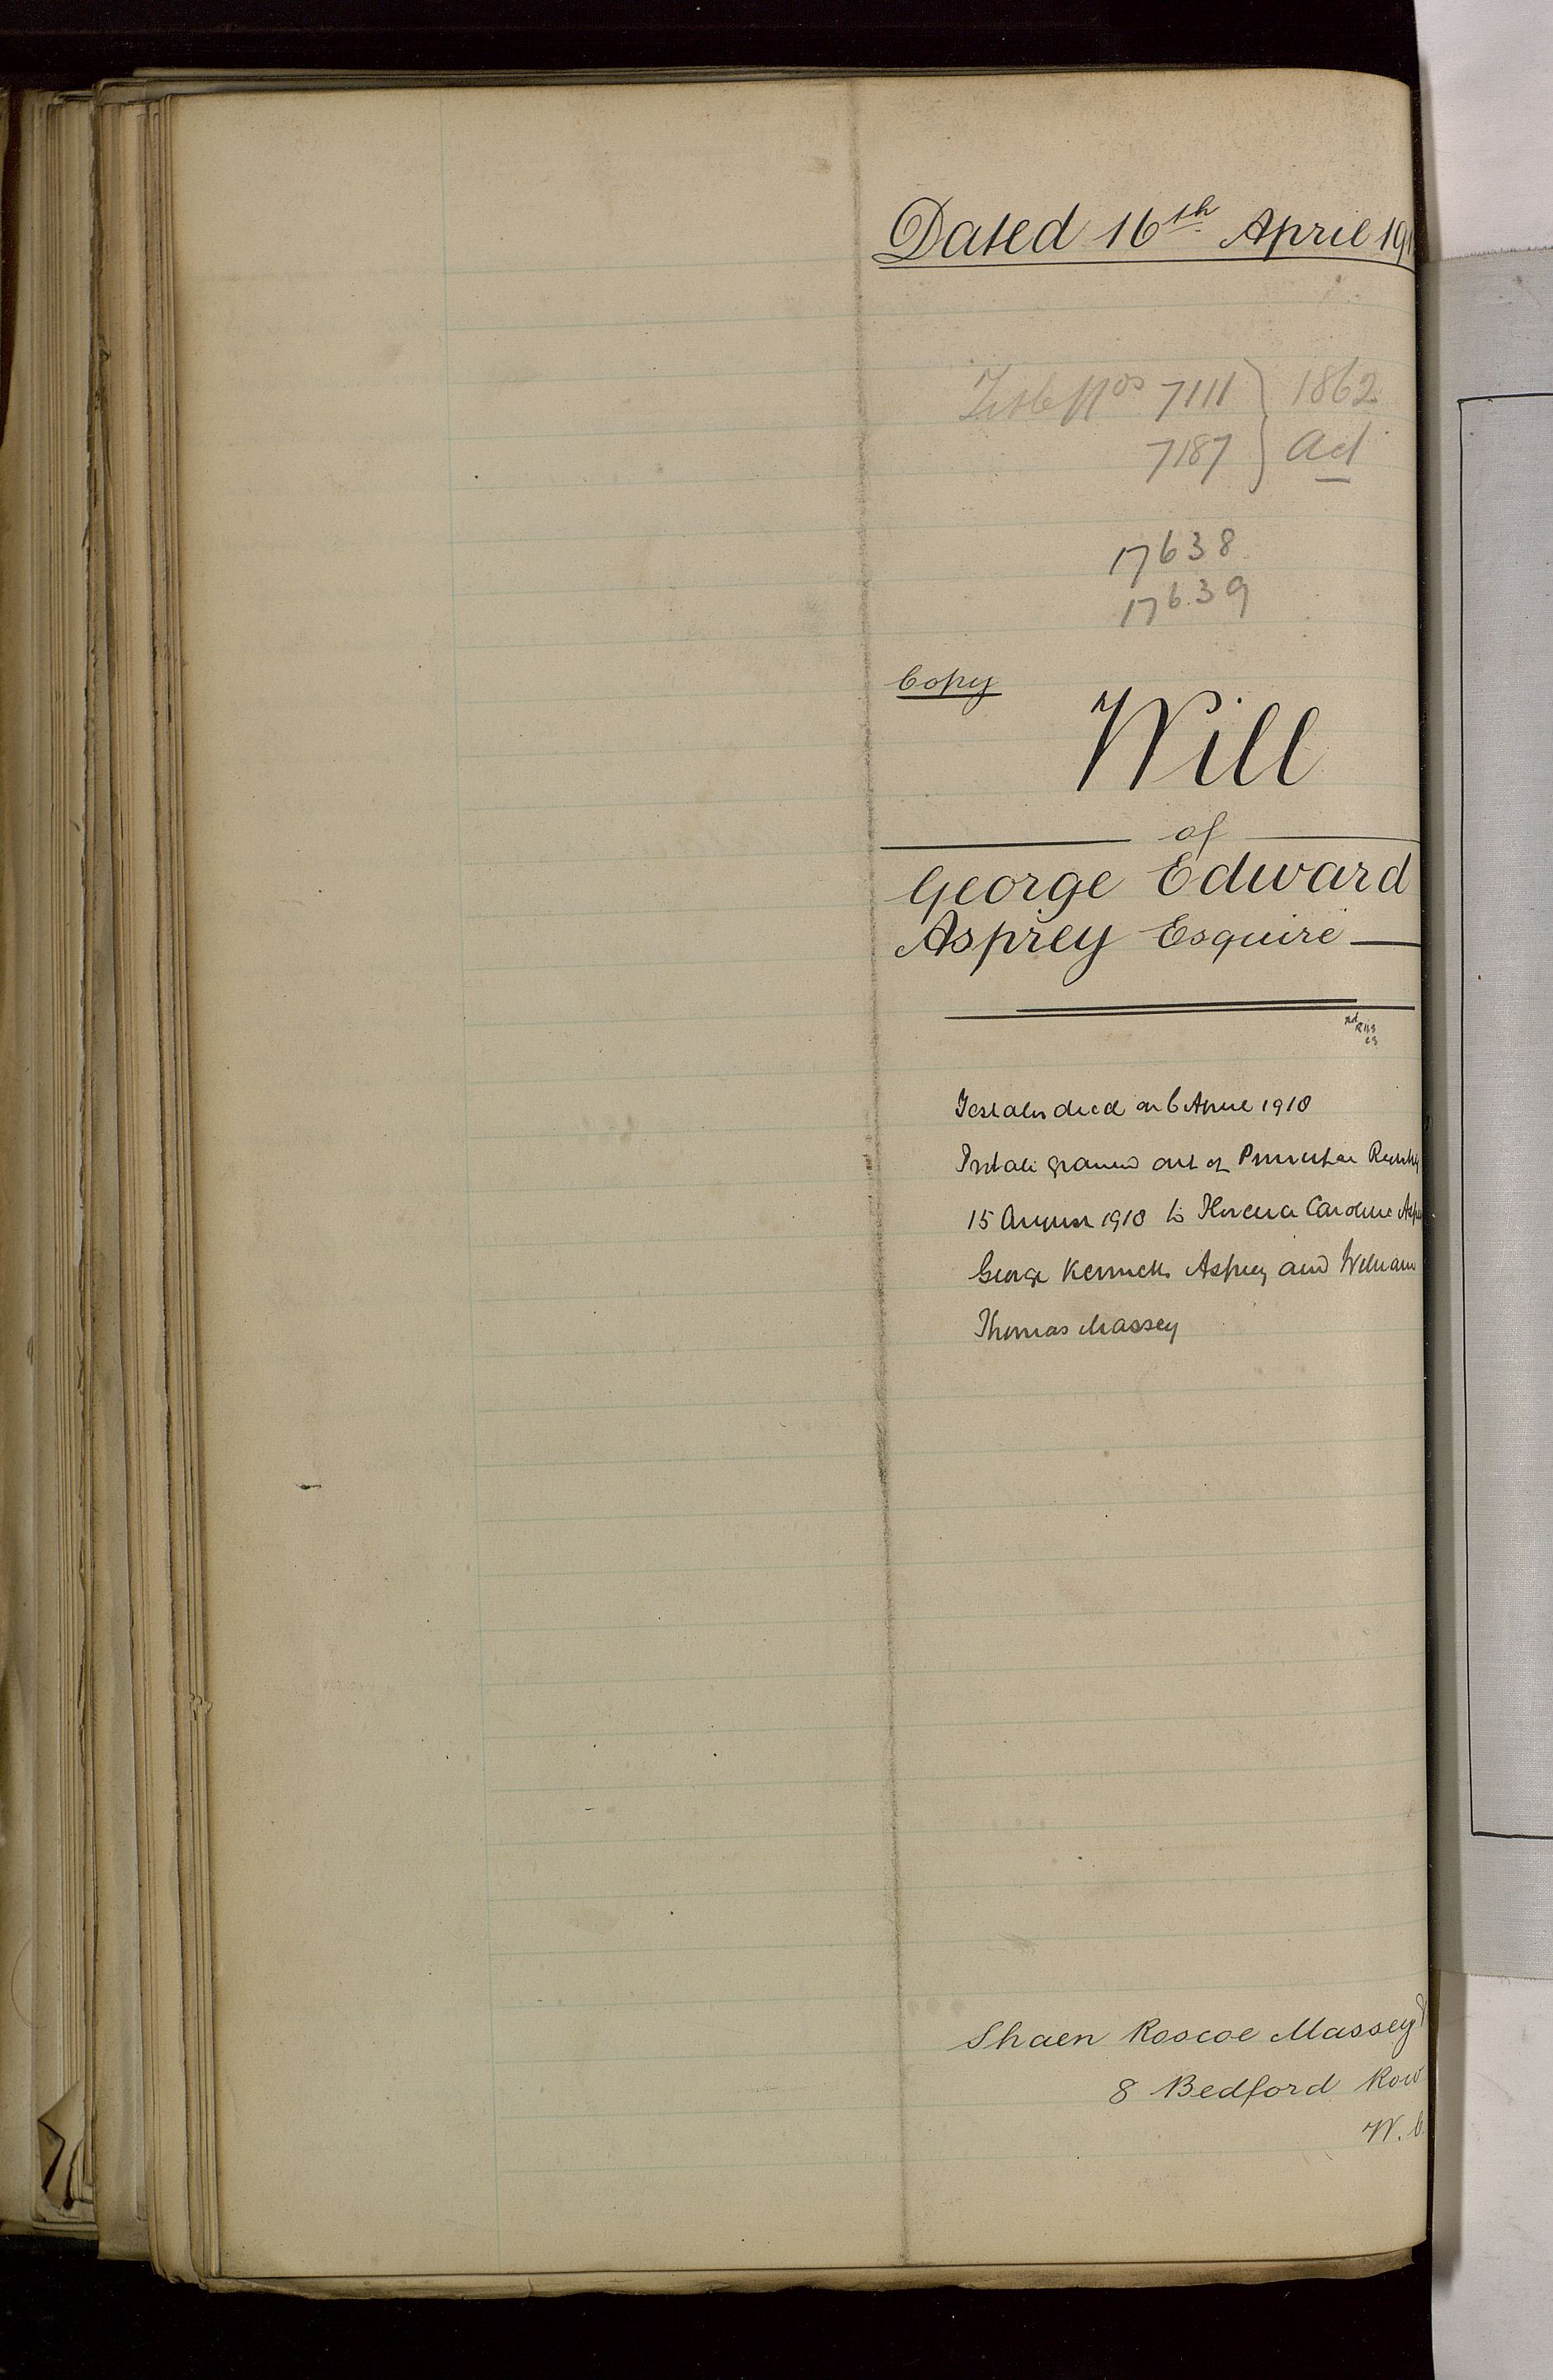 Dated 16th April 191
Title Nos 7111 } 1862
7187 } Act
17638
17639
Copy
Will
of
George Edward
Asprey Esquire
Testator died on 6 April 1918
Probate granted out of Principal Registry
15 August 1918 to Florence Caroline
George Kenneth Asprey and William
Thomas Massey
Shaen Roscoe Massey &
8 Bedford Row
W.C.